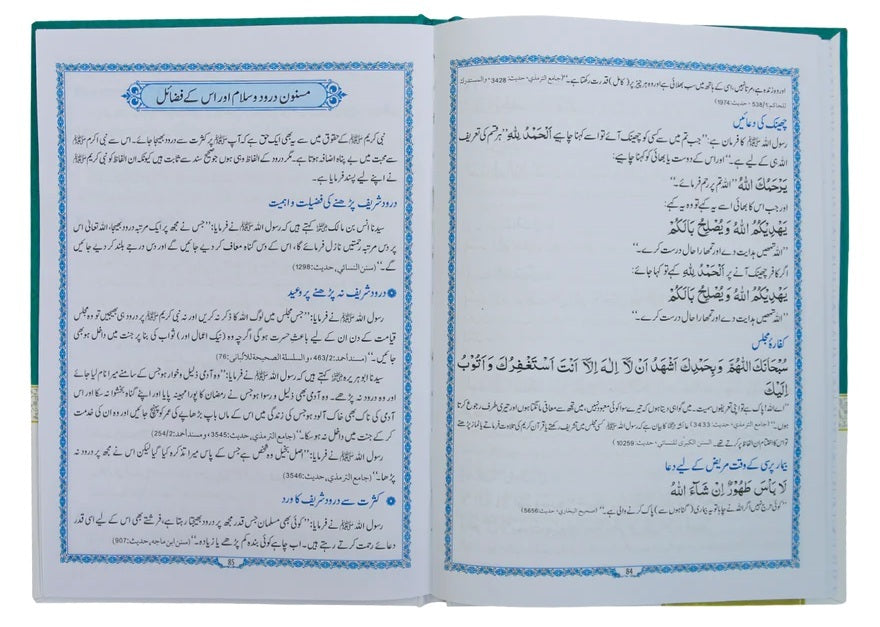 اور وہ زندہ ہے، مرتا نہیں، اسی کے ہاتھ میں سب بھلائی ہے اور وہ ہر چیز پر (کامل) قدرت رکھتا ہے۔‘‘ (جامع الترمذي، حدیث: 3428 والمستدرك
للحاكم: 538/1، حدیث: 1974)
چھینک کی دعائیں
رسول اللہ ﷺ کا فرمان ہے: ’’جب تم میں سے کسی کو چھینک آئے تو اسے کہنا چاہیے اَلْحَمْدُ لِلّٰهِ ’’ہر قسم کی تعریف
اللہ ہی کے لیے ہے۔‘‘ اور اس کے دوست یا بھائی کو کہنا چاہیے:
يَرْحَمُكَ اللّٰهُ ’’اللہ تم پر رحم فرمائے۔‘‘
اور جب اس کا بھائی اسے یہ کہے تو وہ یہ کہے:
يَهْدِيْكُمُ اللّٰهُ وَيُصْلِحُ بَالَكُمْ
’’اللہ تمھیں ہدایت دے اور تمھارا حال درست کرے۔‘‘
اگر کافر چھینک آنے پر اَلْحَمْدُ لِلّٰهِ کہے تو کہا جائے:
يَهْدِيْكُمُ اللّٰهُ وَيُصْلِحُ بَالَكُمْ
’’اللہ تمھیں ہدایت دے اور تمھارا حال درست کرے۔‘‘
کفارۂ مجلس
سُبْحَانَكَ اللّٰهُمَّ وَبِحَمْدِكَ اَشْهَدُ اَنْ لَّا اِلٰهَ اِلَّا اَنْتَ اَسْتَغْفِرُكَ وَاَتُوْبُ
اِلَيْكَ
’’اے اللہ! پاک ہے تو اپنی تعریفوں سمیت۔ میں گواہی دیتا ہوں کہ تیرے سوا کوئی معبود نہیں، میں تجھ سے معافی مانگتا ہوں اور تیری طرف رجوع کرتا
ہوں۔‘‘ (جامع الترمذي، حدیث: 3433) عائشہ رضی اللہ عنہا کا بیان ہے کہ رسول اللہ ﷺ کسی مجلس میں تشریف رکھتے یا قرآن کریم کی تلاوت فرماتے یا نماز پڑھتے
تو اس کا اختتام ان الفاظ پر کرتے تھے۔ السنن الكبرى للنسائي، حدیث: 10259
بیمار پرسی کے وقت مریض کے لیے دعا
لَا بَأْسَ طَهُوْرٌ اِنْ شَآءَ اللّٰهُ
’’کوئی حرج نہیں اگر اللہ نے چاہا تو یہ بیماری (گناہوں سے) پاک کرنے والی ہے۔‘‘ (صحیح البخاري، حدیث: 5656)
84
مسنون درود و سلام اور اس کے فضائل
نبی کریم ﷺ کے حقوق میں سے یہ بھی ایک حق ہے کہ آپ ﷺ پر کثرت سے درود بھیجا جائے۔ اس سے نبی اکرم ﷺ
سے محبت میں بے پناہ اضافہ ہوتا ہے۔ مگر درود کے الفاظ وہی ہوں جو صحیح سند سے ثابت ہیں کیونکہ ان الفاظ کو نبی کریم ﷺ
نے اپنے لیے پسند فرمایا ہے۔
درود شریف پڑھنے کی فضیلت و اہمیت
سیدنا انس بن مالک رضی اللہ عنہ کہتے ہیں کہ رسول اللہ ﷺ نے فرمایا: ’’جس نے مجھ پر ایک مرتبہ درود بھیجا، اللہ تعالیٰ اس
پر دس مرتبہ رحمتیں نازل فرمائے گا، اس کے دس گناہ معاف کر دیے جائیں گے اور دس درجے بلند کر دیے جائیں
گے۔‘‘ (سنن النسائي، حدیث: 1298)
درود شریف نہ پڑھنے پر وعید
رسول اللہ ﷺ نے فرمایا: ’’جس مجلس میں لوگ اللہ کا ذکر نہ کریں اور نہ نبی کریم ﷺ پر درود ہی بھیجیں تو وہ مجلس
قیامت کے دن ان کے لیے باعث حسرت ہوگی اگرچہ وہ (نیک اعمال اور) ثواب کی بنا پر جنت میں داخل ہو بھی
جائیں۔‘‘ (مسند أحمد: 463/2، والسلسلة الصحيحة للألباني: 76)
سیدنا ابو ہریرہ رضی اللہ عنہ کہتے ہیں کہ رسول اللہ ﷺ نے فرمایا: ’’وہ آدمی ذلیل و خوار ہو جس کے سامنے میرا نام لیا جائے
اور وہ درود نہ پڑھے۔ وہ آدمی بھی ذلیل و رسوا ہو جس نے رمضان کا پورا مہینہ پایا اور اپنے گناہ بخشوا نہ سکا اور اس
آدمی کی ناک بھی خاک آلود ہو جس کی زندگی میں اس کے ماں باپ بڑھاپے کی عمر کو پہنچ جائیں اور وہ ان کی خدمت
کر کے جنت میں داخل نہ ہو سکا۔‘‘ (جامع الترمذي، حدیث: 3545، و مسند أحمد: 254/2)
رسول اللہ ﷺ نے فرمایا: ’’اصل بخیل وہ شخص ہے جس کے پاس میرا تذکرہ کیا گیا لیکن اس نے مجھ پر درود نہ
پڑھا۔‘‘ (جامع الترمذي، حدیث: 3546)
کثرت سے درود شریف کا ورد
رسول اللہ ﷺ نے فرمایا: ’’کوئی بھی مسلمان جس قدر مجھ پر درود بھیجتا رہتا ہے، فرشتے بھی اس کے لیے اسی قدر
دعائے رحمت کرتے رہتے ہیں۔ اب چاہے کوئی بندہ کم پڑھے یا زیادہ۔‘‘ (سنن ابن ماجه، حدیث: 907)
85